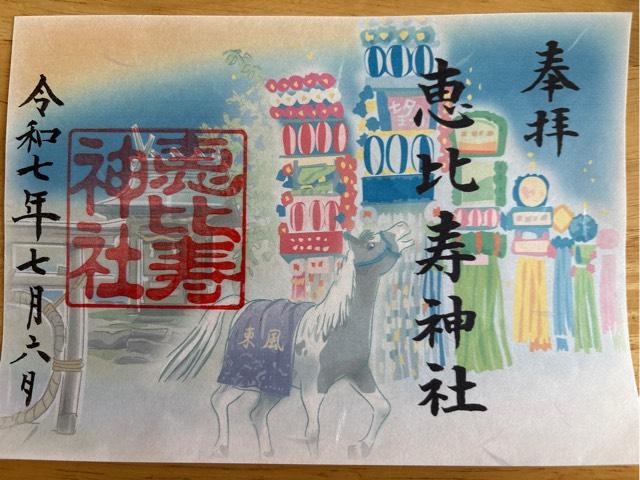 奉拝
恵比寿神社
七夕
恵比寿
神社
東風
令和七年七月六日